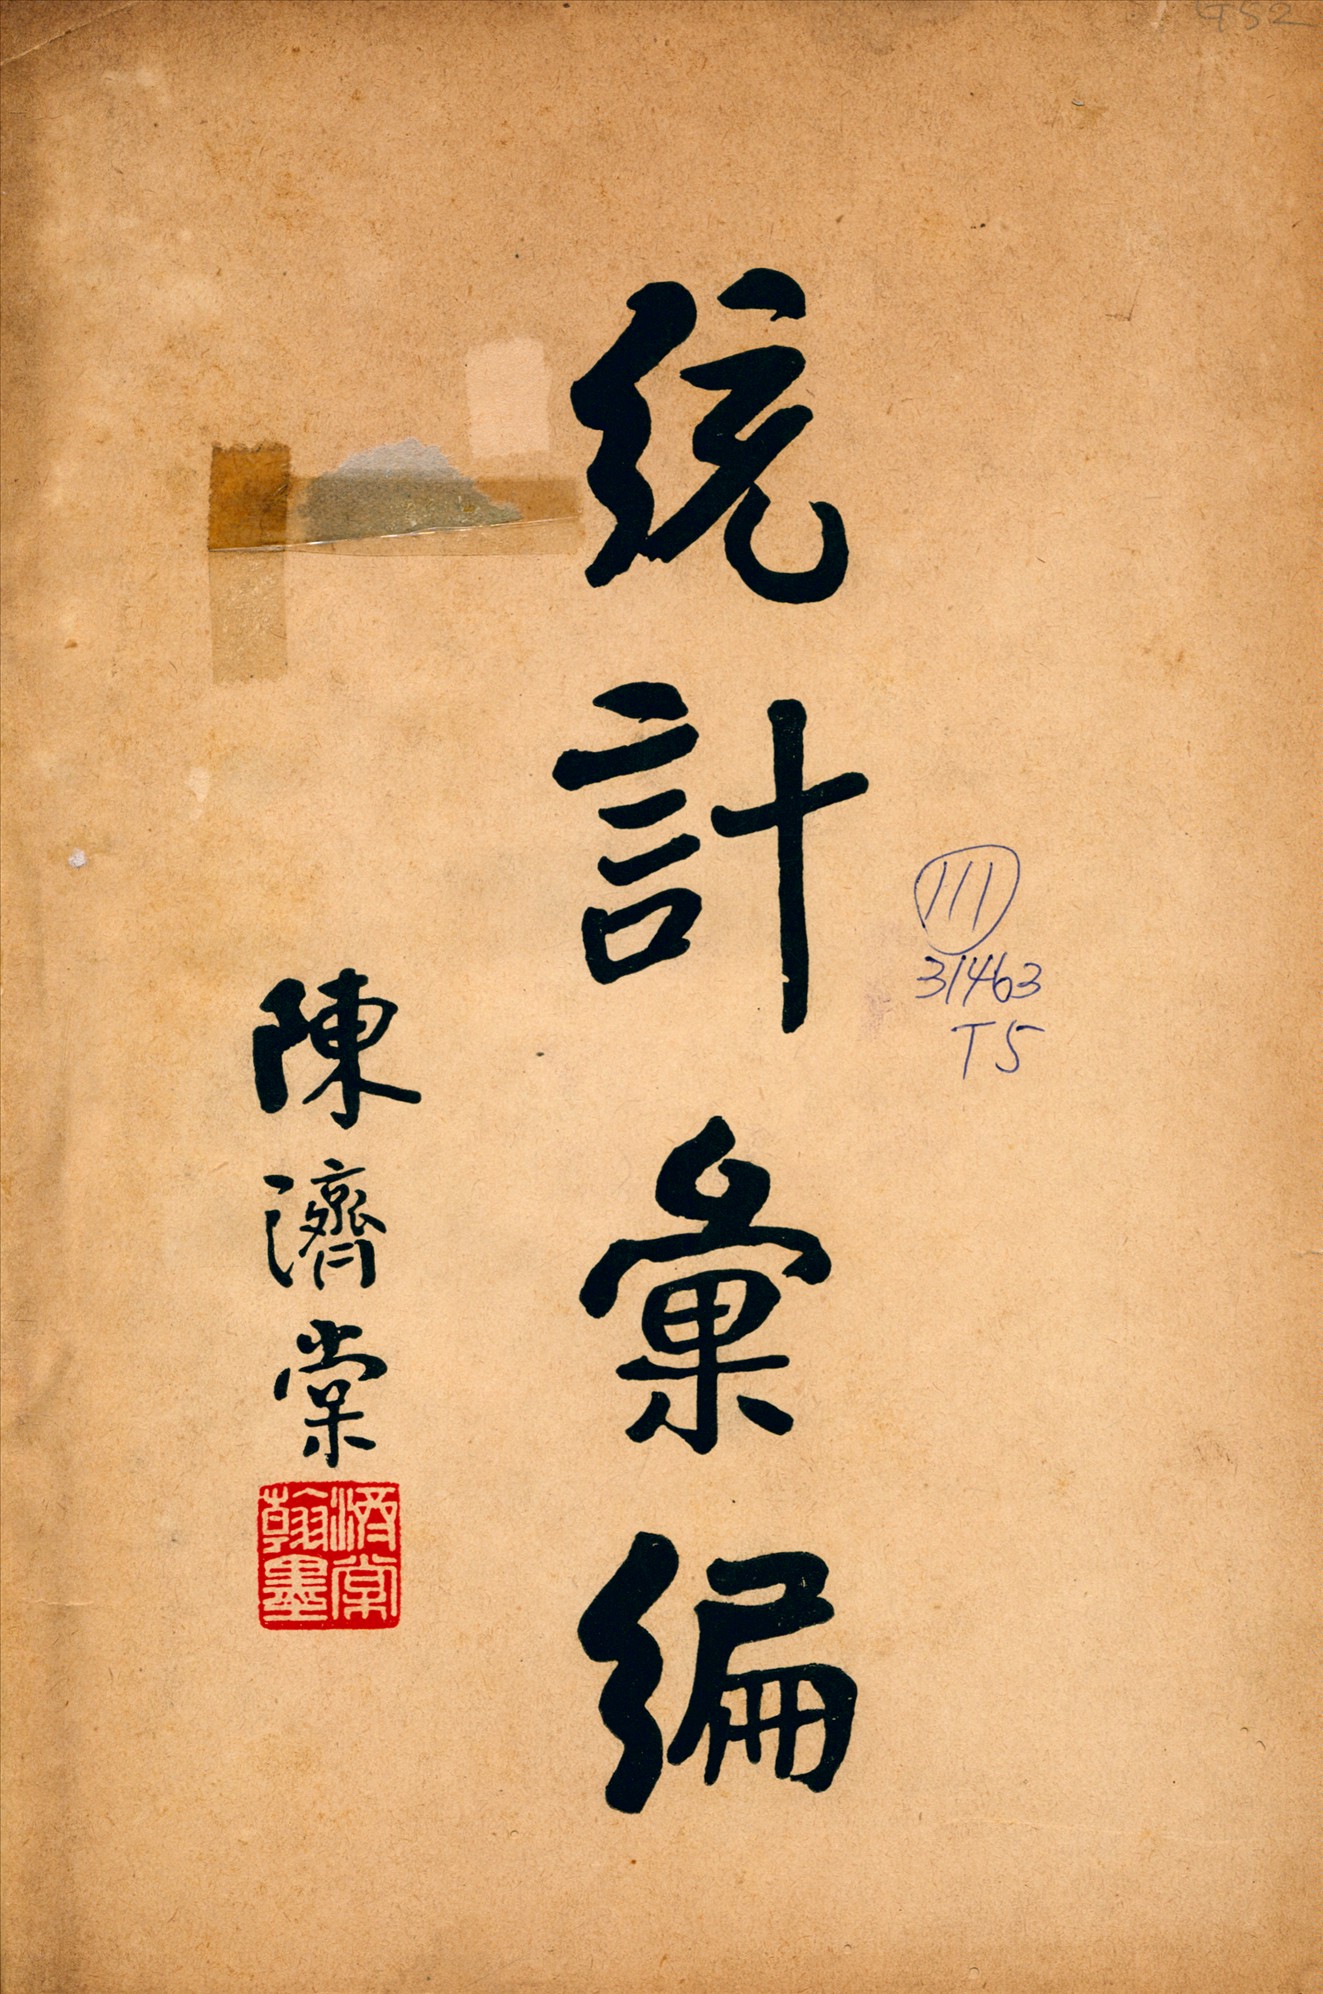 統計彙編
陳濟棠
濟棠
翰墨
111
31463
T5
G52